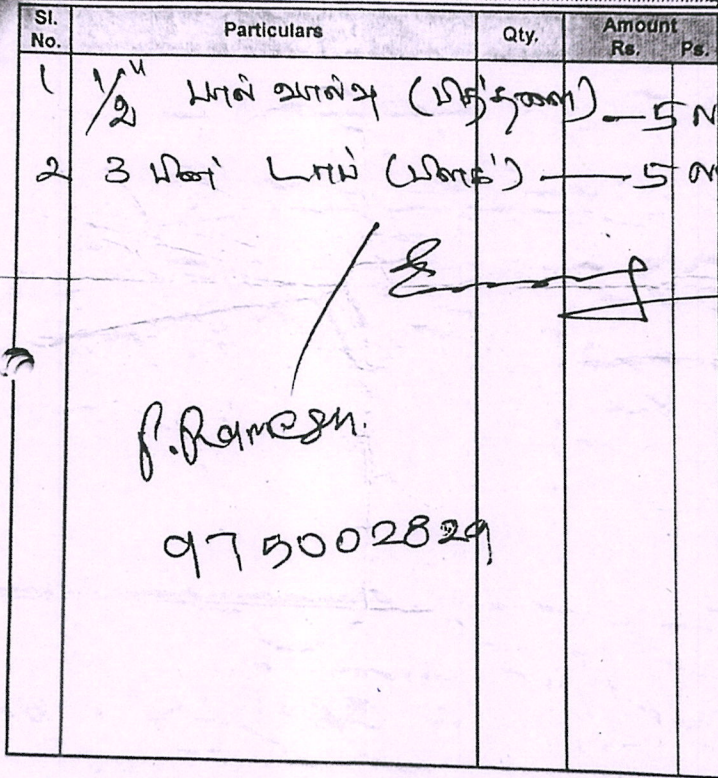 Sl. No. Particulars Qty. Amount Rs. Ps.
1 1/2" பால் வால்வு (பித்தளை) — 5 N
2 3 பின் டாப் (பிளக்) — 5 N
P. Ramesh.
975002829